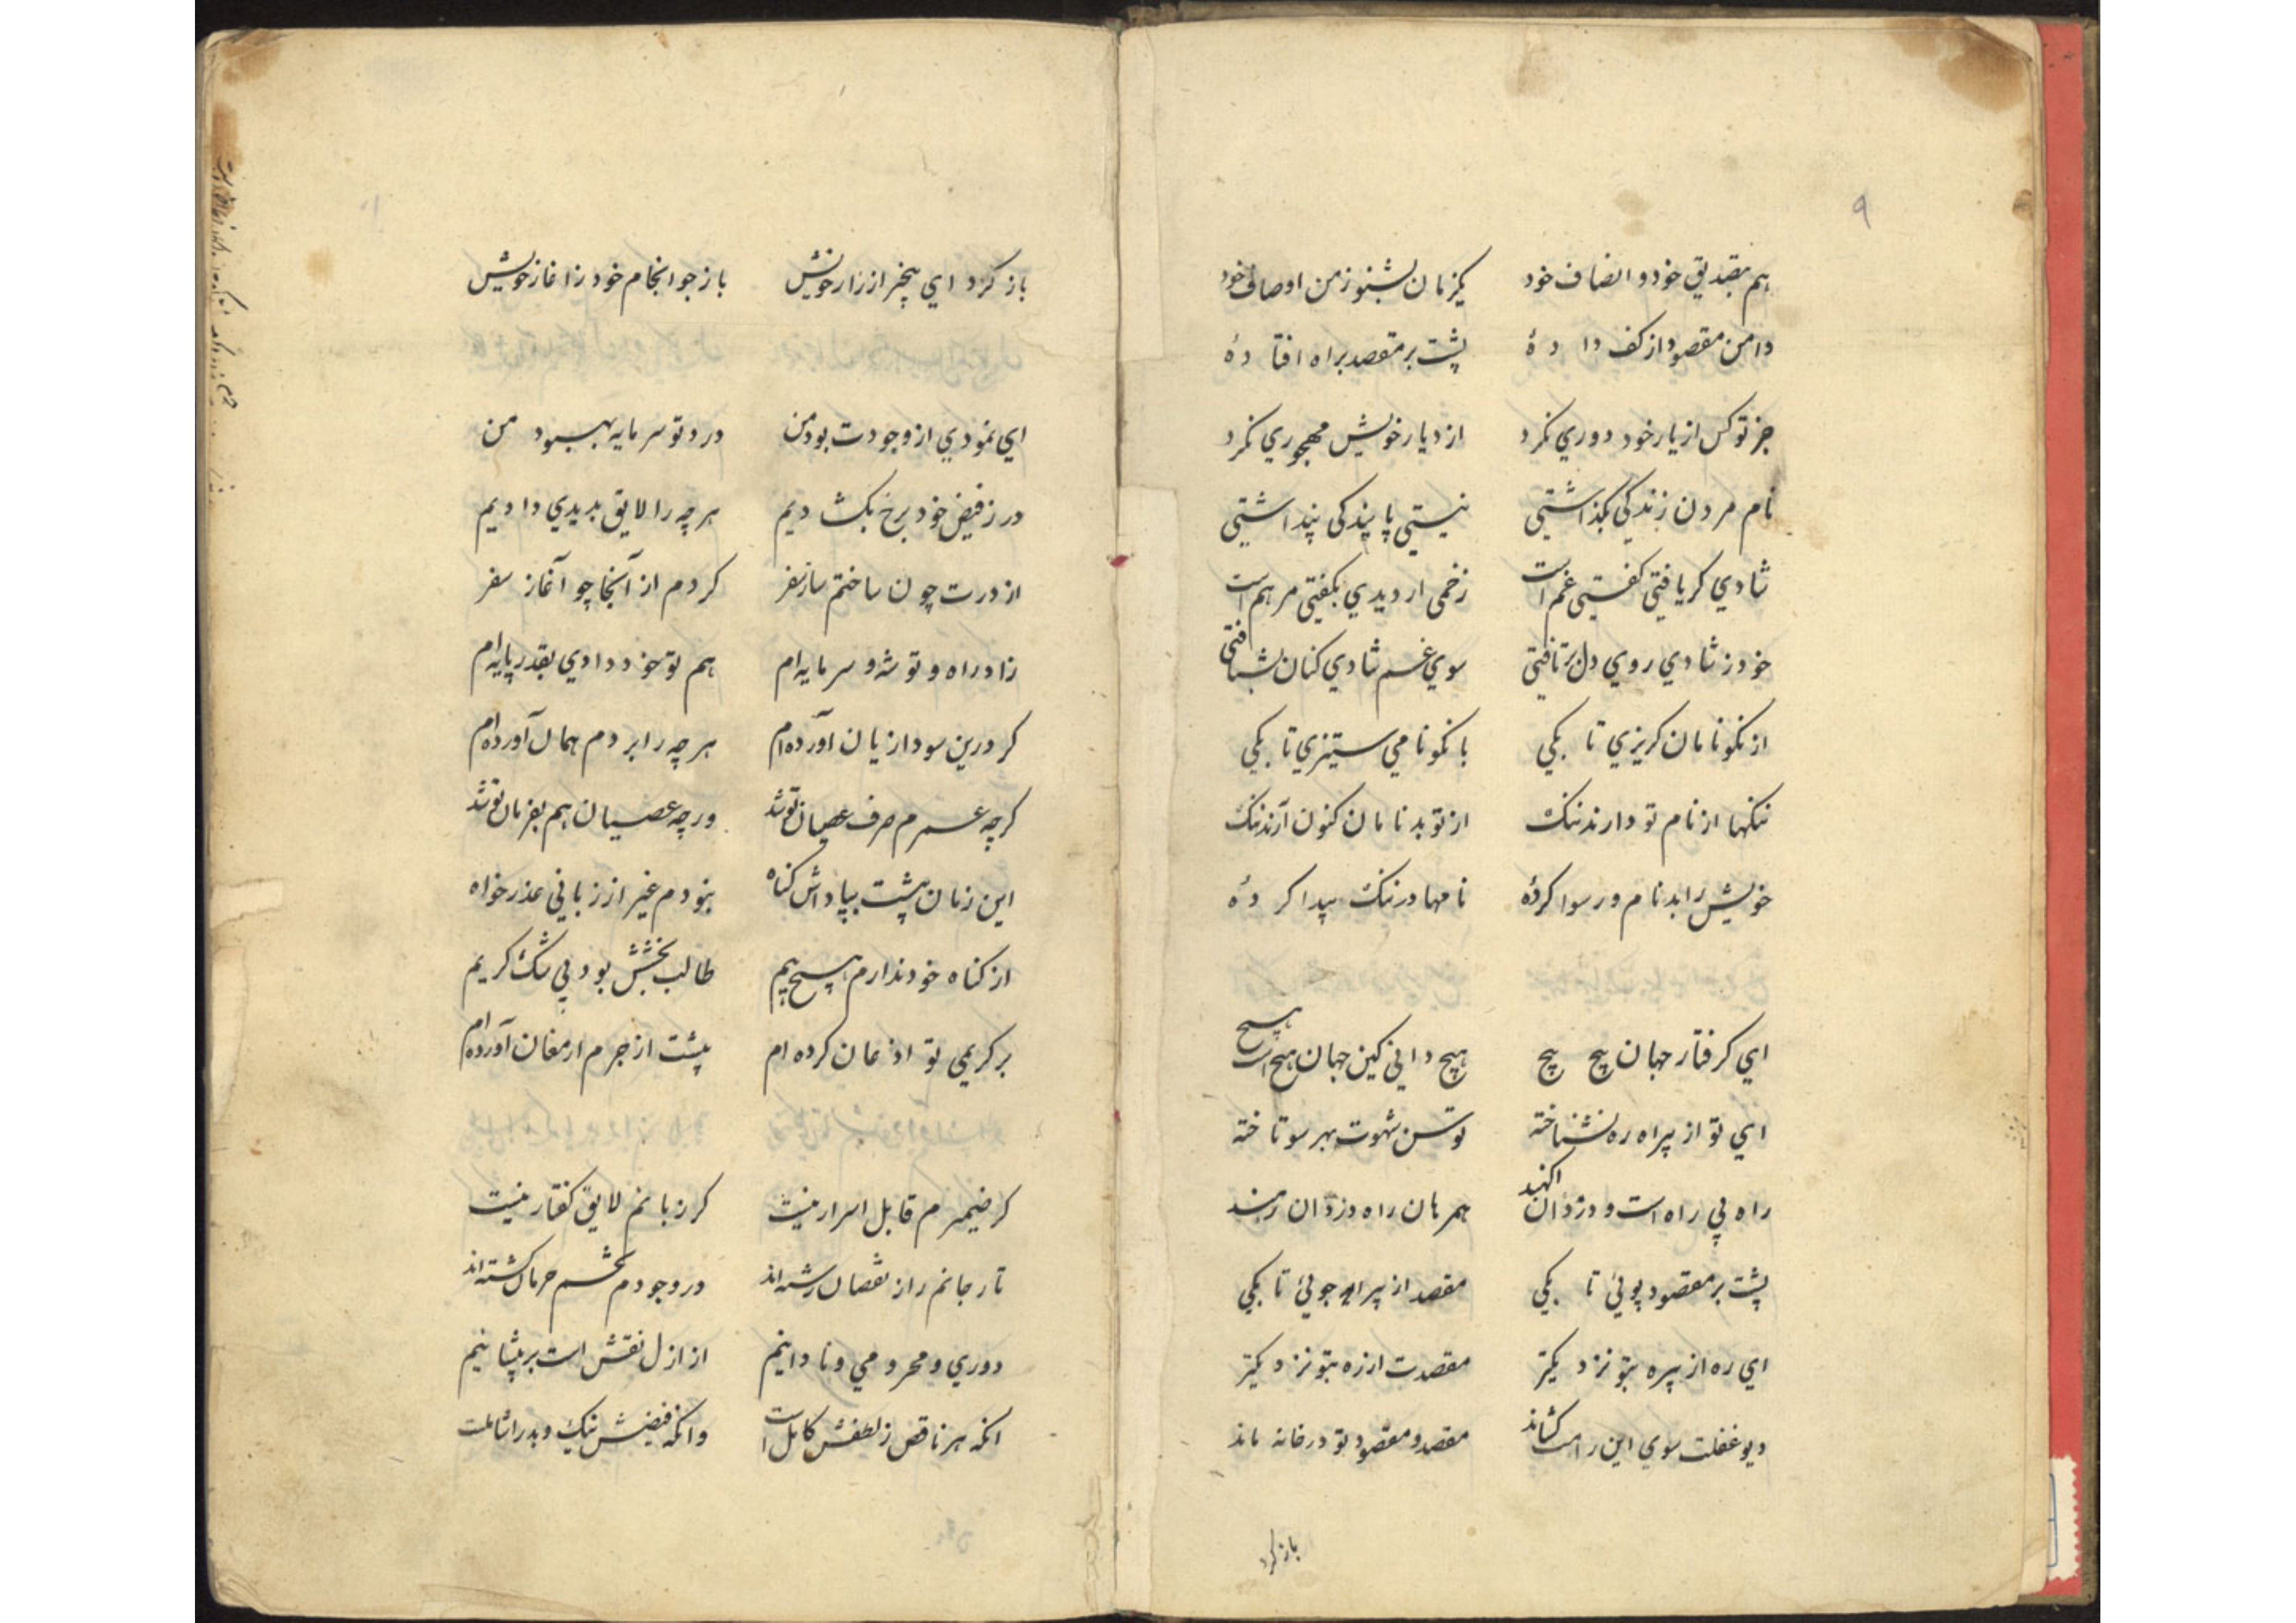 ۹
هم بتصدیق خود و انصاف خود یکزمان بشنو زمن اوصاف خود
دامن مقصود از کف دا دهٔ پشت بر مقصد براه افتا دهٔ
جز تو کس از یار خود دوري نکرد از دیار خویش مهجوري نکرد
نام مردن زندکي بکذاشتي نیستي پایندکي پنداشتي
شادي کر یافتي کفتي غم است زخمي ار دیدي بکفتي مرهم است
خود ز شادي روي دل برتافتي سوي غم شادي کنان بشتافتي
از نکونامان کریزي تا بکي با نکونامي ستیزي تا بکي
ننکها از نام تو دارند ننک از تو بدنامان کنون آرند ننک
خویش را بدنام و رسوا کردهٔ نامها در ننک پیدا کر دهٔ
اي کرفتار جهان پیچ پیچ هیچ داني کین جهان هیچ است هیچ
اي تو از بیراه ره نشناخته توسن شهوت بهر سو تاخته
راه بي راه است و دزدان همرهان راه دزدان رهند
پشت بر مقصود پوئي تا بکي مقصد از بیراه جوئي تا بکي
اي ره از بیره بتو نزد یکتر مقصدت از ره بتو نزدیکتر
دیو غفلت سوي این راهت کشاند مقصد و مقصود تو در خانه ماند
باز کرد
باز کرد اي بیخبر از راز خویش باز جو انجام خود ز اغاز خویش
اي نمودي از وجودت بود من درد تو سرمایه بهبود من
در ز فیض خود برخ بکشا دیم هر چه را لایق بدیدي دادیم
از درت چون ساختم ساز سفر کردم از آنجا چو آغاز سفر
زاد راه و توشه و سرمایه ام هم تو خود دادي بقدر پایه ام
کر درین سودا زیان آورده ام هر چه را بردم همان آورده ام
کرچه عمرم صرف عصیان تو شد ورچه عصیان هم بفرمان تو شد
این زمان پیشت بپاداش کناه نبودم غیر از زباني عذر خواه
از کناه خود ندارم هیچ بیم طالب بخشش بود بي شک کریم
بر کریمي تو اذعان کرده ام پیشت از جرم ارمغان آورده ام
کر ضمیرم قابل اسرار نیست کر زبانم لایق کفتار نیست
تار جانم را ز نقصان رشته اند در وجودم تخم حرمان کشته اند
دوري و محرومي و نادانیم از ازل نقش است بر پیشانیم
انکه هر ناقص ز لطفش کامل است وانکه فیضش نیک و بد را شاملست